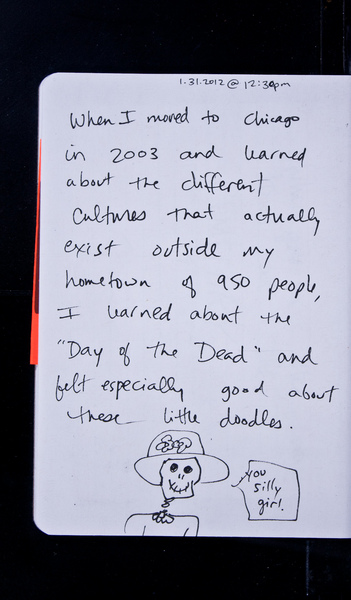 1.31.2012 @ 12:30pm
When I moved to Chicago
in 2003 and learned
about the different
cultures that actually
exist outside my
hometown of 950 people,
I learned about the
"Day of the Dead" and
felt especially good about
these little doodles.
you
silly
girl.